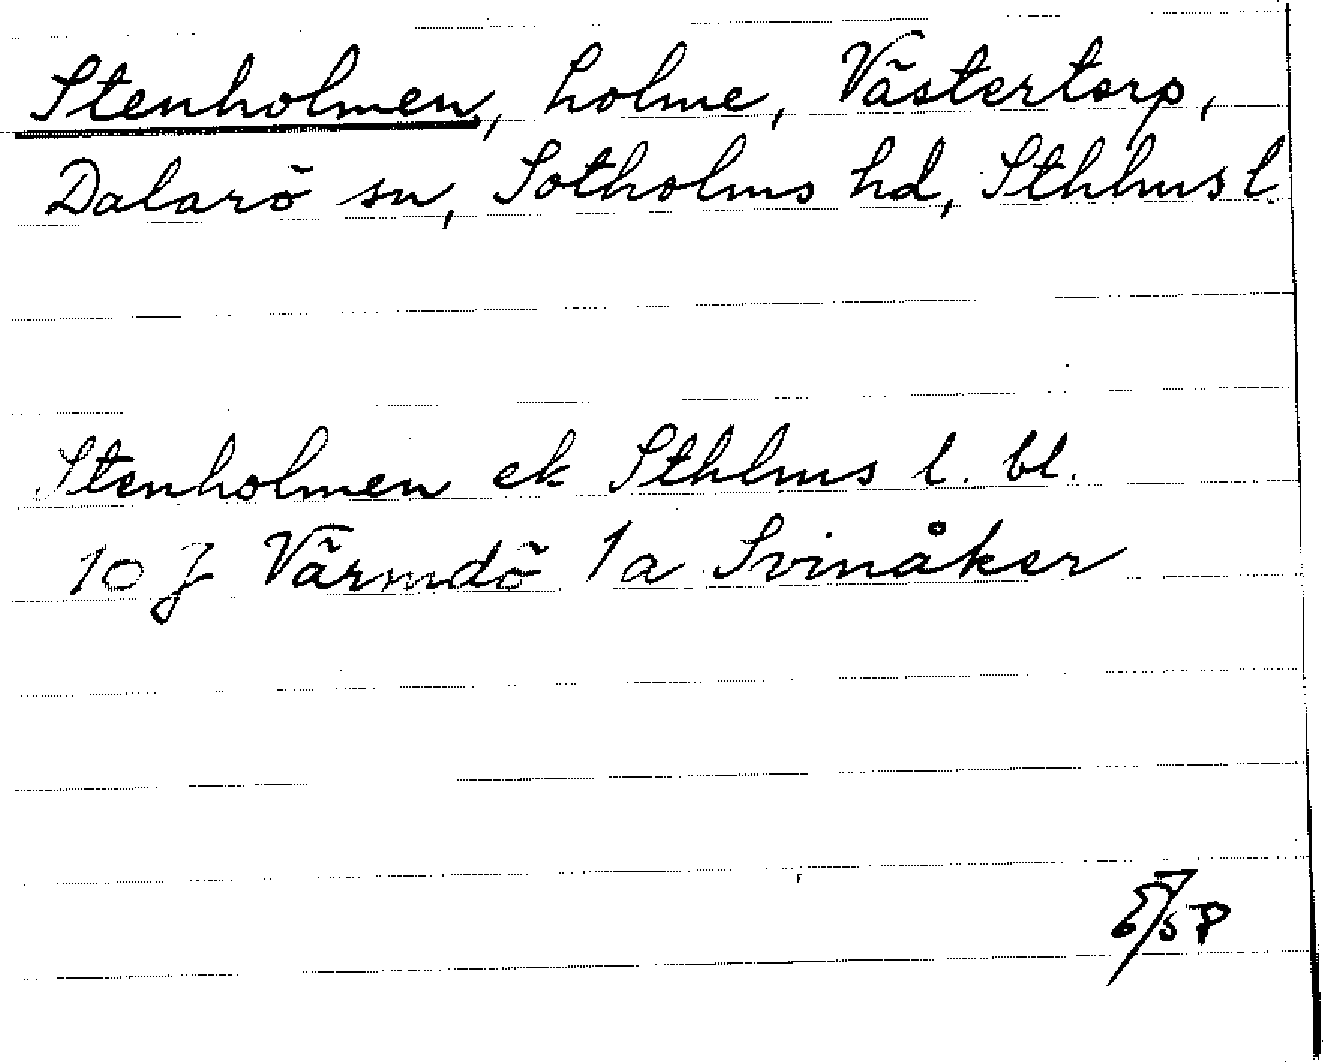 Stenholmen, holme, Västertorp,
Dalarö sn, Sotholms hd, Sthlms l.
Stenholmen ek Sthlms l. bl.
10 J Värmdö 1a Svinåker